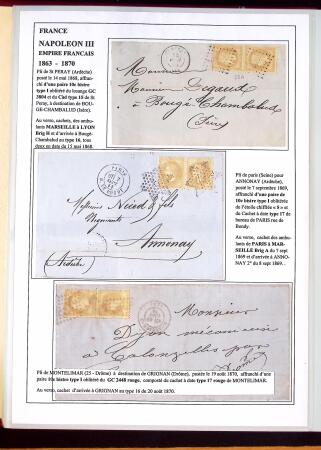 FRANCE
NAPOLEON III
EMPIRE FRANCAIS
1863 - 1870
Pli de St PERAY (Ardèche)
posté le 14 mai 1868, affran-
chi d'une paire de 10c bistre
type I oblitéré du losange GC
3804 et du Càd type 15 de St
Peray, à destination de BOU-
GE-CHAMBALUD (Isère).
Au verso, cachets des ambu-
lants MARSEILLE à LYON
Brig H et d'arrivée à Bougé-
Chambalud au type 16, tous
deux en date du 15 mai 1868.
Monsieur
Monsieur Degaud
à Bougé Chambalud
(Isère)
Pli de paris (Seine) pour
ANNONAY (Ardèche),
posté le 7 septembre 1869,
affranchi d'une paire de
10c bistre type I oblitérée
de l'étoile chiffrée « 8 » et
du Cachet à date type 17 de
bureau de PARIS rue de
Bondy.
Au verso, cachet des ambu-
lants de PARIS à MAR-
SEILLE Brig A du 7 sept
1869 et d'arrivée à ANNO-
NAY 2° du 8 sept 1869.
Messieurs
& fils
Négociants
Annonay
(Ardèche)
Monsieur
Dijon mécanicien
à Colonzelles par
Pli de MONTELIMAR (25 - Drôme) à destination de GRIGNAN (Drôme), postée le 19 août 1870, affranchi d'une
paire 10c bistre type I oblitéré du GC 2448 rouge, composté du cachet à date type 17 rouge de MONTELIMAR.
Au verso, cachet d'arrivée à GRIGNAN au type 16 du 20 août 1870.